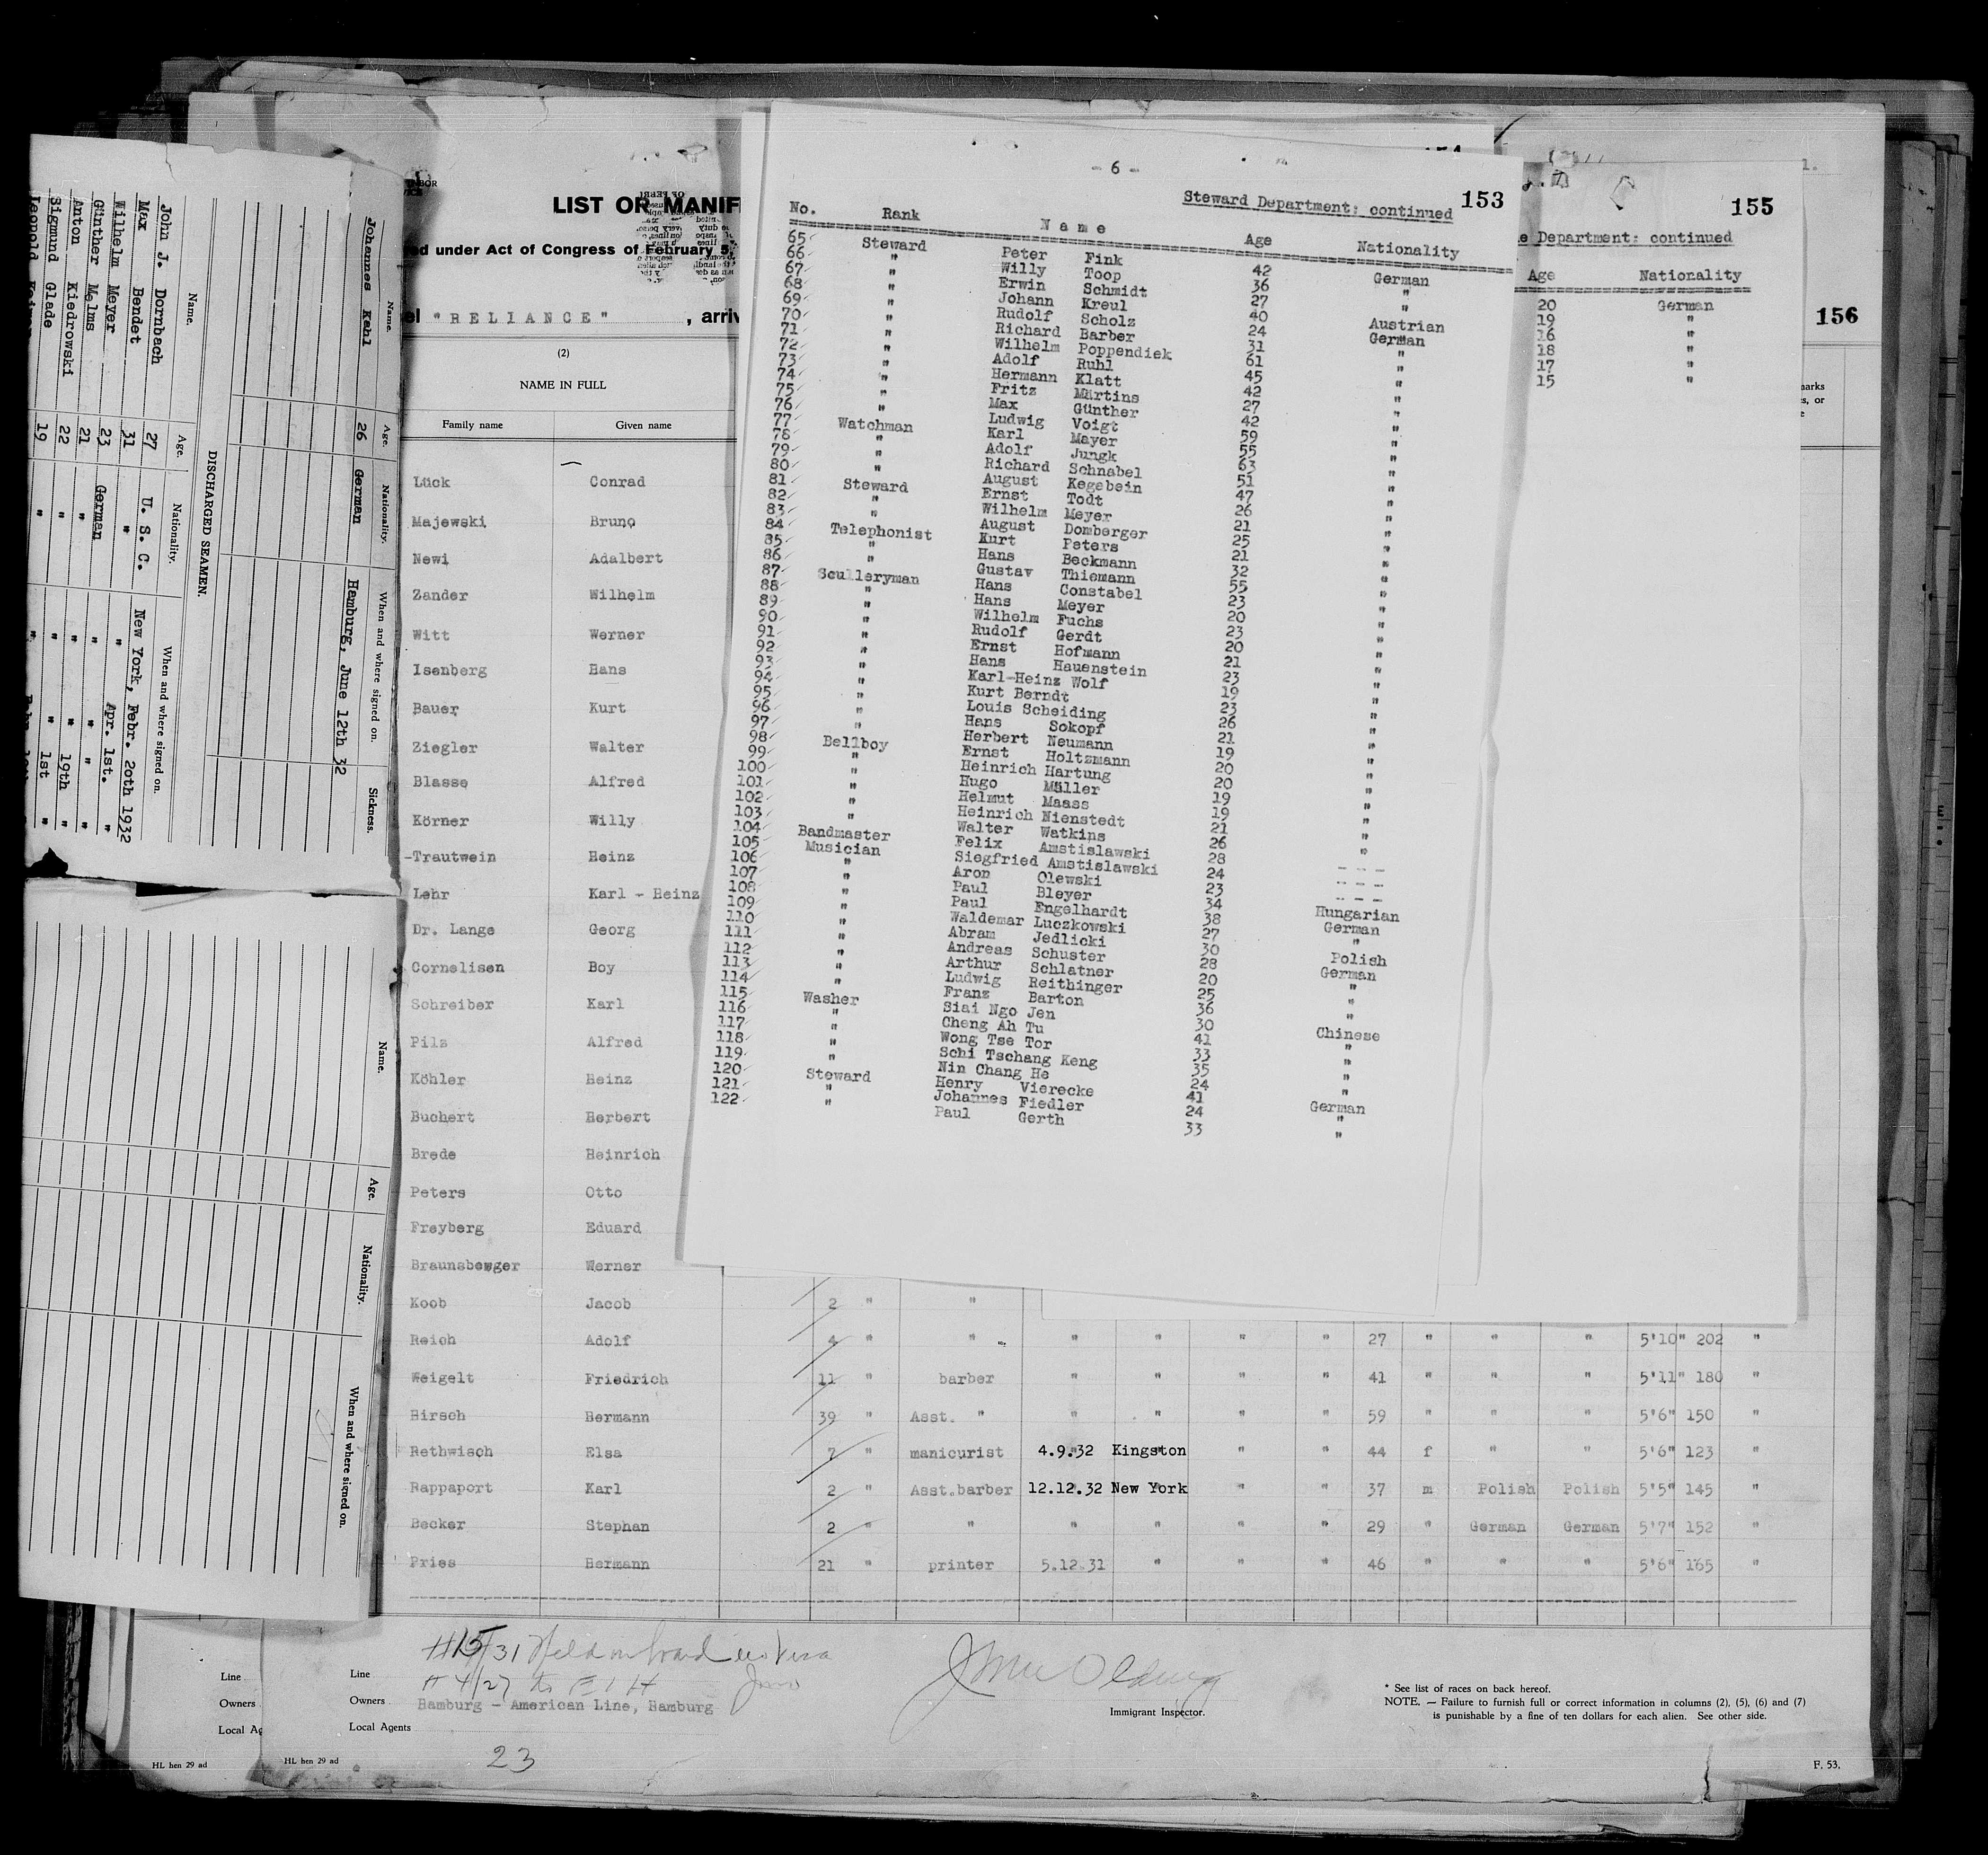 LIST OR MANIF
ed under Act of Congress of February 5,
el "RELIANCE" , arriv
(2)
NAME IN FULL
Family name Given name
Lück Conrad
Majewski Bruno
Newi Adalbert
Zander Wilhelm
Witt Werner
Isenberg Hans
Bauer Kurt
Ziegler Walter
Blasse Alfred
Körner Willy
-Trautwein Heinz
Lehr Karl - Heinz
Dr. Lange Georg
Cornelisen Boy
Schreiber Karl
Pilz Alfred
Köhler Heinz
Buchert Herbert
Brede Heinrich
Peters Otto
Freyberg Eduard
Braunsberger Werner
Koob Jacob 2 " "
Reich Adolf 4 " " " " " " 27 " " " 5'10" 202 "
Weigelt Friedrich 11 " barber " " " " 41 " " " 5'11" 180 "
Hirsch Hermann 39 " Asst. " " " " " 59 " " " 5'6" 150 "
Rethwisch Elsa 7 " manicurist 4.9.32 Kingston " " 44 f " " 5'6" 123 "
Rappaport Karl 2 " Asst.barber 12.12.32 New York " " 37 m Polish Polish 5'5" 145 "
Becker Stephan 2 " " " " " " 29 " German German 5'7" 152 "
Pries Hermann 21 " printer 5.12.31 " " " 46 " " " 5'6" 165 "
Line
Owners
Hamburg - American Line, Hamburg
Local Agents
23
HL hen 29 ad
Immigrant Inspector.
* See list of races on back hereof.
NOTE. — Failure to furnish full or correct information in columns (2), (5), (6) and (7)
is punishable by a fine of ten dollars for each alien. See other side.
F. 53.
Line
Owners
Local Ag
HL hen 29 ad
- 6 -
Steward Department: continued 153
No. Rank Name Age Nationality
65 Steward Peter Fink 42 German
66 " Willy Toop 36 "
67 " Erwin Schmidt 27 "
68 " Johann Kreul 40 Austrian
69 " Rudolf Scholz 24 German
70 " Richard Barber 31 "
71 " Wilhelm Poppendiek 61 "
72 " Adolf Ruhl 45 "
73 " Hermann Klatt 42 "
74 " Fritz Martins 27 "
75 " Max Günther 42 "
76 " Ludwig Voigt 59 "
77 Watchman Karl Mayer 55 "
78 " Adolf Jungk 63 "
79 " Richard Schnabel 51 "
80 " August Kegebein 47 "
81 Steward Ernst Todt 26 "
82 " Wilhelm Meyer 21 "
83 " August Domberger 25 "
84 Telephonist Kurt Peters 21 "
85 " Hans Beckmann 32 "
86 " Gustav Thiemann 55 "
87 Sculleryman Hans Constabel 23 "
88 " Hans Meyer 20 "
89 " Wilhelm Fuchs 23 "
90 " Rudolf Gerdt 20 "
91 " Ernst Hofmann 21 "
92 " Hans Hauenstein 23 "
93 " Karl-Heinz Wolf 19 "
94 " Kurt Berndt 23 "
95 " Louis Scheiding 26 "
96 " Hans Sokopf 21 "
97 " Herbert Neumann 19 "
98 Bellboy Ernst Holtzmann 20 "
99 " Heinrich Hartung 20 "
100 " Hugo Müller 19 "
101 " Helmut Maass 19 "
102 " Heinrich Nienstedt 21 "
103 " Walter Watkins 26 "
104 Bandmaster Felix Amstislawski 28 - - -
105 Musician Siegfried Amstislawski 24 - - -
106 " Aron Olewski 23 - - -
107 " Paul Bleyer 34 Hungarian
108 " Paul Engelhardt 38 German
109 " Waldemar Luczkowski 27 "
110 " Abram Jedlicki 30 Polish
111 " Andreas Schuster 28 German
112 " Arthur Schlatner 20 "
113 " Ludwig Reithinger 25 "
114 " Franz Barton 36 "
115 Washer Siai Ngo Jen 30 Chinese
116 " Cheng Ah Tu 41 "
117 " Wong Tse Tor 33 "
118 " Schi Tschang Keng 35 "
119 " Nin Chang He 24 "
120 Steward Henry Vierecke 41 German
121 " Johannes Fiedler 24 "
122 " Paul Gerth 33 "
155
e Department: continued
Age Nationality
20 German
19 "
16 "
18 "
17 "
15 "
156
marks
s, or
e
Name. Age. Nationality. When and where signed on. Sickness.
Johannes Kehl 26 German Hamburg, June 12th 32
DISCHARGED SEAMEN.
Name. Age. Nationality. When and where signed on.
John J. Dornbach 27 U. S. C. New York, Febr. 20th 1932
Max Bendet 31 " " Apr. 1st. "
Wilhelm Meyer 23 German " " "
Günther Melms 21 " " 19th "
Anton Kiedrowski 22 " " 1st "
Sigmund Glade 19 "
Leopold
Name. Age. Nationality. When and where signed on.